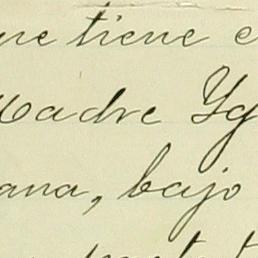 ue tiene e
Madre Yg
ana, bajo